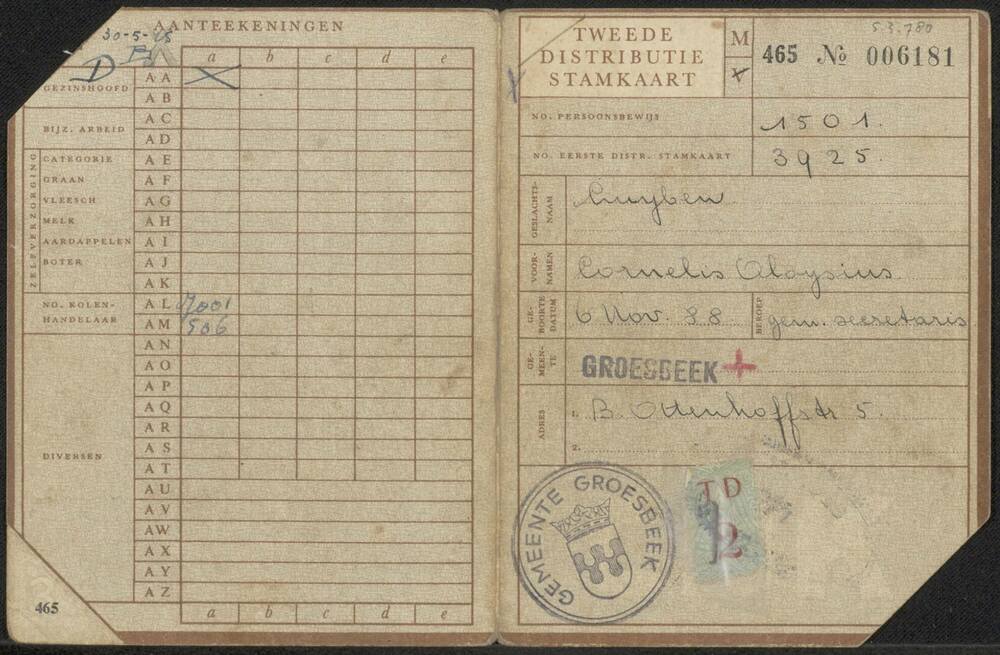 30-5-45
AANTEEKENINGEN
D
a b c d e
GEZINSHOOFD
A A
A B
BIJZ. ARBEID
A C
A D
ZELFVERZORGING
CATEGORIE
A E
GRAAN
A F
VLEESCH
A G
MELK
A H
AARDAPPELEN
A I
BOTER
A J
A K
NO. KOLEN-
HANDELAAR
A L 7001
A M 506
A N
A O
A P
A Q
A R
A S
DIVERSEN
A T
A U
A V
AW
A X
A Y
A Z
465
a b c d e
S.3.780
TWEEDE
DISTRIBUTIE
STAMKAART
M
V
465 № 006181
NO. PERSOONSBEWIJS 1501.
NO. EERSTE DISTR. STAMKAART 3925.
GESLACHTS-
NAAM
Luyben
VOOR-
NAMEN
Cornelis Aloysius
GE-
BOORTE
DATUM
6 Nov. 88
BEROEP
gem. secretaris
GE-
MEEN-
TE
GROESBEEK
ADRES
1. B. Ottenhoffstr 5.
2.
GEMEENTE GROESBEEK
TD
2